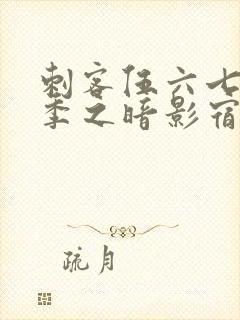 刺客伍六七
季之暗影宿
疏月